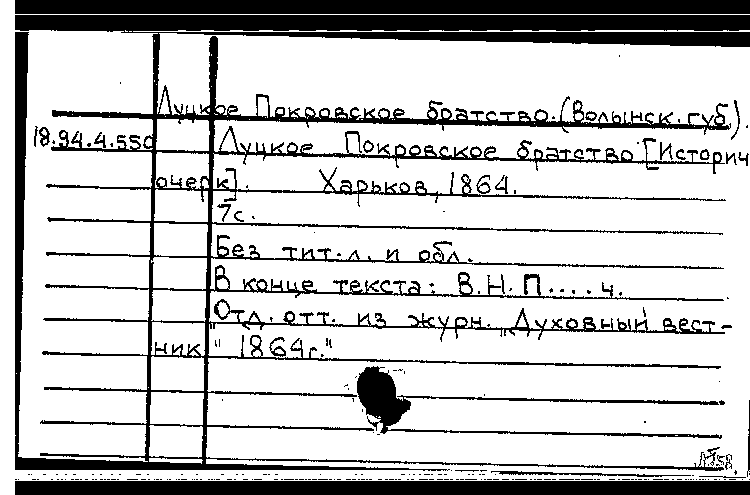 Луцкое Покровское братство. (Волынск. губ).
18.94.4.550 Луцкое Покровское братство [Историч
очерк]. Харьков, 1864.
7с.
Без тит. л. и обл.
В конце текста: В.Н.П....ч.
Отд. отт. из журн. „Духовный вест-
ник" 1864г."